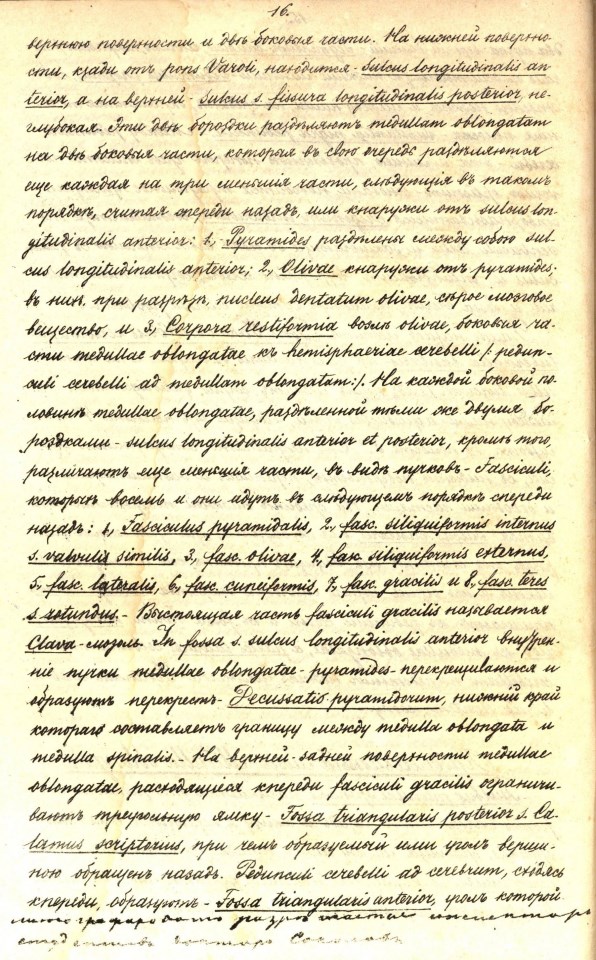 16.
верхнюю поверхности и двѣ боковыя части. На нижней поверхно-
сти, кзади отъ pons Varoli, находится - sulcus longitudinalis an-
terior, а на верхней - sulcus s. fissura longitudinalis posterior, не-
глубокая. Эти двѣ бороздки раздѣляютъ medullam oblongatam
на двѣ боковыя части, которыя въ свою очередь раздѣляются
еще каждая на три меньшія части, слѣдующія въ такомъ
порядкѣ, считая спереди назадъ, или кнаружи отъ sulcus lon-
gitudinalis anterior: 1, Pyramides раздѣлены между собою sul-
cus longitudinalis anterior; 2, Olivae кнаружи отъ pyramides;
въ нихъ, при разрѣзѣ, nucleus dentatum olivae, сѣрое мозговое
вещество, и 3, Corpora restiformia возлѣ olivae, боковыя ча-
сти medullae oblongatae къ hemisphaeriae cerebelli /: pedun-
culi cerebelli ad medullam oblongatam:/. На каждой боковой по-
ловинѣ medullae oblongatae, раздѣленной тѣми же двумя бо-
роздками - sulcus longitudinalis anterior et posterior, кромѣ того,
различаютъ еще меньшія части, въ видѣ пучковъ - Fasciculi,
которыхъ восемь и они идутъ въ слѣдующемъ порядкѣ спереди
назадъ: 1, Fasciculus pyramidalis, 2, fasc. siliquiformis internus
s. valvulis similis, 3, fasc. olivae, 4, fasc. siliquiformis externus,
5, fasc. lateralis, 6, fasc. cuneiformis, 7, fasc. gracilis и 8, fasc. teres
s. rotundus. - Выстоящая часть fasciculi gracilis называется
Clava - мозоль. In fossa s. sulcus longitudinalis anterior внутрен-
ніе пучки medullae oblongatae - pyramides - перекрещиваются и
образуютъ перекрестъ - Decussatio pyramidorum, нижній край
котораго составляетъ границу между medulla oblongata и
medulla spinalis. - На верхней - задней поверхности medullae
oblongatae, расходящіеся кпереди fasciculi gracilis ограничи-
ваютъ треугольную ямку - Fossa triangularis posterior s. Ca-
lamus scriptorius, при чемъ образуемый ими уголъ верши-
ною обращенъ назадъ. Pedunculi cerebelli ad cerebrum, сходясь
кпереди, образуютъ - Fossa triangularis anterior, уголъ которой